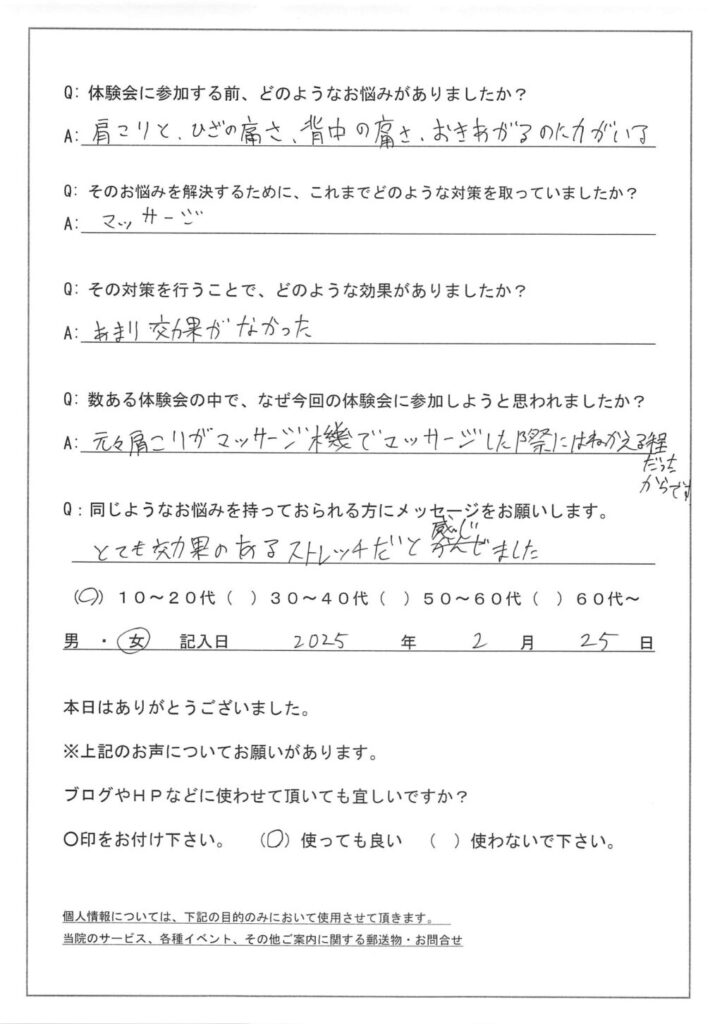 Q: 体験会に参加する前、どのようなお悩みがありましたか？
A: 肩こりと、ひざの痛さ、背中の痛さ、おきあがるのに力がいる
Q: そのお悩みを解決するために、これまでどのような対策を取っていましたか？
A: マッサージ
Q: その対策を行うことで、どのような効果がありましたか？
A: あまり効果がなかった
Q: 数ある体験会の中で、なぜ今回の体験会に参加しようと思われましたか？
A: 元々肩こりがマッサージ機でマッサージした際にはねかえる程
だった
からです
Q：同じようなお悩みを持っておられる方にメッセージをお願いします。
とても効果のあるストレッチだと感じました
（○）１０～２０代（　）３０～４０代（　）５０～６０代（　）６０代～
男　・　女　　記入日　2025　年　2　月　25　日
本日はありがとうございました。
※上記のお声についてお願いがあります。
ブログやＨＰなどに使わせて頂いても宜しいですか？
〇印をお付け下さい。　（○）使っても良い　（　）使わないで下さい。
個人情報については、下記の目的のみにおいて使用させて頂きます。
当院のサービス、各種イベント、その他ご案内に関する郵送物・お問合せ